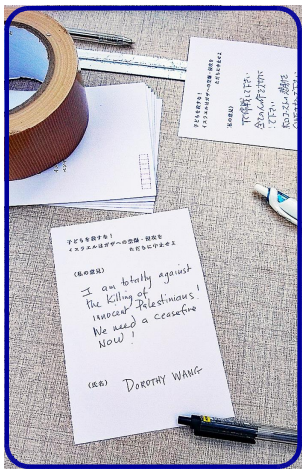 子どもを殺すな！
イスラエルはガザへの空爆・侵攻を
ただちに中止せよ
（私の意見）
I am totally against
the killing of
innocent Palestinians!
We need a ceasefire
NOW!
（氏名） DOROTHY WANG
子どもを殺すな！
イスラエルはガザへの空爆・侵攻を
ただちに中止せよ
（私の意見）